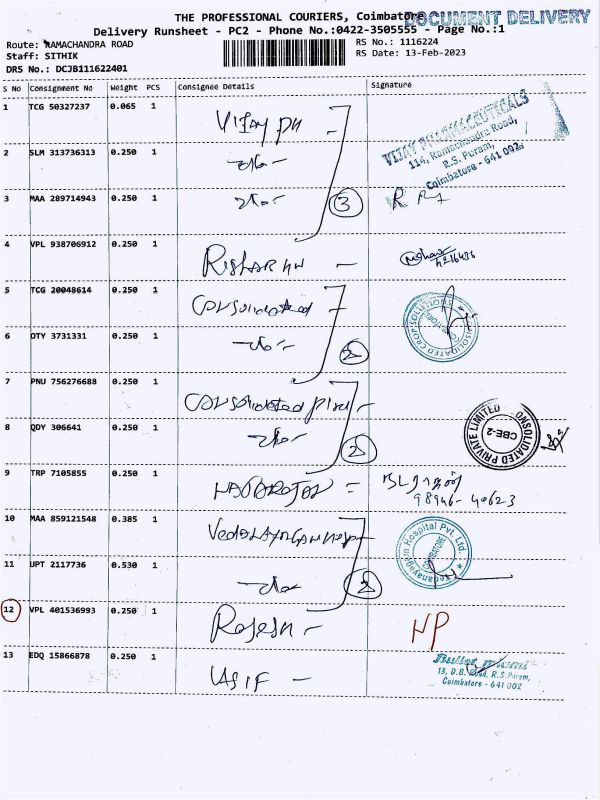 THE PROFESSIONAL COURIERS, Coimbatore
DOCUMENT DELIVERY
Delivery Runsheet - PC2 - Phone No.:0422-3505555 - Page No.:1
Route: RAMACHANDRA ROAD
RS No.: 1116224
Staff: SITHIK
RS Date: 13-Feb-2023
DRS No.: DCJB111622401
S No Consignment No Weight PCS Consignee Details Signature
1 TCG 50327237 0.065 1 Vijay PH
VIJAY PHARMACEUTICALS
114, Ramachandra Road,
R.S. Puram,
Coimbatore - 641 002
2 SLM 313736313 0.250 1 -do-
3 MAA 289714943 0.250 1 -do- 3
4 VPL 938706912 0.250 1
5 TCG 20048614 0.250 1 Consolidated
CONSOLIDATED CROP SOLUTIONS
6 OTY 3731331 0.250 1 -do- 2
7 PNU 756276688 0.250 1 Consolidated
8 QDY 306641 0.250 1 -do- 2
CONSOLIDATED PRIVATE LIMITED
CBE-2
9 TRP 7105855 0.250 1 நடராஜன்
98946-40623
10 MAA 859121548 0.385 1
Vedanayagam Hospital Pvt. Ltd.
COIMBATORE
11 UPT 2117736 0.530 1 -do- 2
12 VPL 401536993 0.250 1 Rajesh - NP
13 EDQ 15866878 0.250 1 -
13, D.B. Road, R.S. Puram,
Coimbatore - 641 002